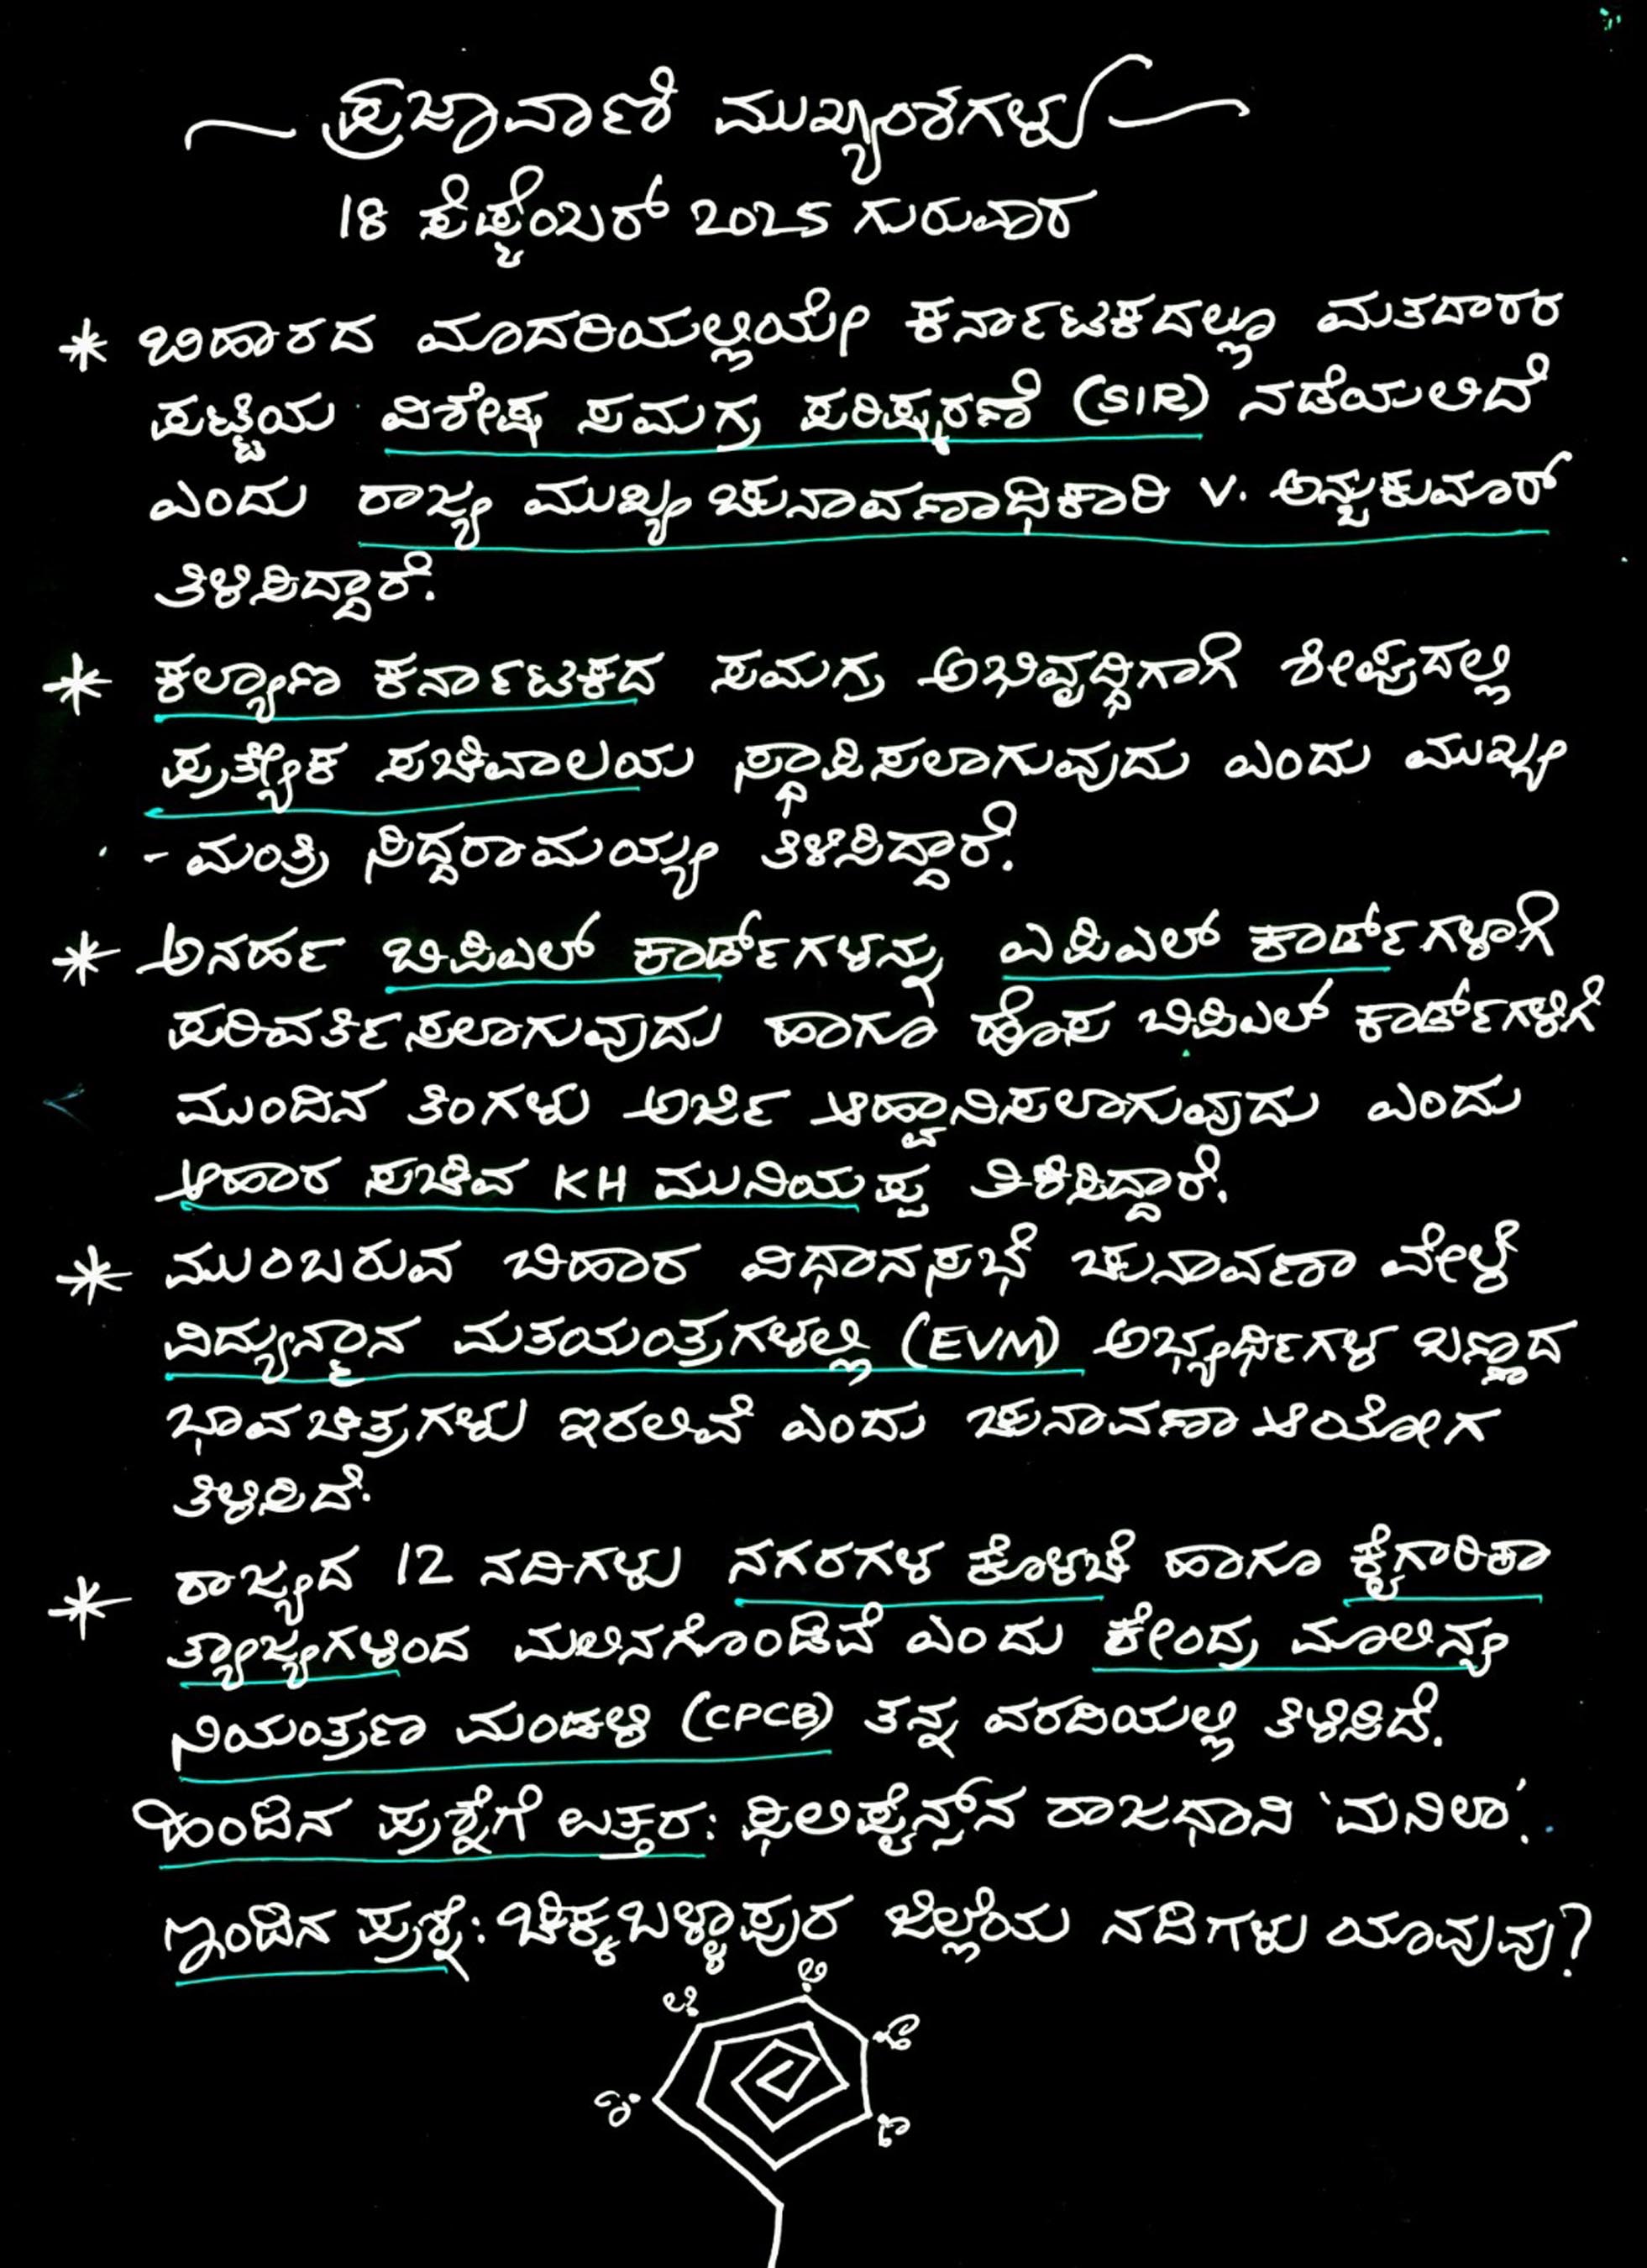 ಪ್ರಜಾವಾಣಿ ಮುಖ್ಯಾಂಶಗಳು
18 ಸೆಪ್ಟೆಂಬರ್ 2025 ಗುರುವಾರ
* ಬಿಹಾರದ ಮಾದರಿಯಲ್ಲಿಯೇ ಕರ್ನಾಟಕದಲ್ಲೂ ಮತದಾರರ
ಪಟ್ಟಿಯ ವಿಶೇಷ ಸಮಗ್ರ ಪರಿಷ್ಕರಣೆ (SIR) ನಡೆಯಲಿದೆ
ಎಂದು ರಾಜ್ಯ ಮುಖ್ಯ ಚುನಾವಣಾಧಿಕಾರಿ V. ಅನ್ಬುಕುಮಾರ್
ತಿಳಿಸಿದ್ದಾರೆ.
* ಕಲ್ಯಾಣ ಕರ್ನಾಟಕದ ಸಮಗ್ರ ಅಭಿವೃದ್ಧಿಗಾಗಿ ಶೀಘ್ರದಲ್ಲಿ
ಪ್ರತ್ಯೇಕ ಸಚಿವಾಲಯ ಸ್ಥಾಪಿಸಲಾಗುವುದು ಎಂದು ಮುಖ್ಯ
- ಮಂತ್ರಿ ಸಿದ್ದರಾಮಯ್ಯ ತಿಳಿಸಿದ್ದಾರೆ.
* ಅನರ್ಹ ಬಿಪಿಎಲ್ ಕಾರ್ಡ್‌ಗಳನ್ನು ಎಪಿಎಲ್ ಕಾರ್ಡ್‌ಗಳಾಗಿ
ಪರಿವರ್ತಿಸಲಾಗುವುದು ಹಾಗೂ ಹೊಸ ಬಿಪಿಎಲ್ ಕಾರ್ಡ್‌ಗಳಿಗೆ
ಮುಂದಿನ ತಿಂಗಳು ಅರ್ಜಿ ಆಹ್ವಾನಿಸಲಾಗುವುದು ಎಂದು
ಆಹಾರ ಸಚಿವ KH ಮುನಿಯಪ್ಪ ತಿಳಿಸಿದ್ದಾರೆ.
* ಮುಂಬರುವ ಬಿಹಾರ ವಿಧಾನಸಭೆ ಚುನಾವಣಾ ವೇಳೆ
ವಿದ್ಯುನ್ಮಾನ ಮತಯಂತ್ರಗಳಲ್ಲಿ (EVM) ಅಭ್ಯರ್ಥಿಗಳ ಬಣ್ಣದ
ಭಾವಚಿತ್ರಗಳು ಇರಲಿವೆ ಎಂದು ಚುನಾವಣಾ ಆಯೋಗ
ತಿಳಿಸಿದೆ.
* ರಾಜ್ಯದ 12 ನದಿಗಳು ನಗರಗಳ ಕೊಳಚೆ ಹಾಗೂ ಕೈಗಾರಿಕಾ
ತ್ಯಾಜ್ಯಗಳಿಂದ ಮಲಿನಗೊಂಡಿವೆ ಎಂದು ಕೇಂದ್ರ ಮಾಲಿನ್ಯ
ನಿಯಂತ್ರಣಾ ಮಂಡಳಿ (CPCB) ತನ್ನ ವರದಿಯಲ್ಲಿ ತಿಳಿಸಿದೆ.
ಹಿಂದಿನ ಪ್ರಶ್ನೆಗೆ ಉತ್ತರ: ಫಿಲಿಪೈನ್ಸ್‌ನ ರಾಜಧಾನಿ 'ಮನಿಲಾ'.
ಇಂದಿನ ಪ್ರಶ್ನೆ: ಚಿಕ್ಕಬಳ್ಳಾಪುರ ಜಿಲ್ಲೆಯ ನದಿಗಳು ಯಾವುವು?